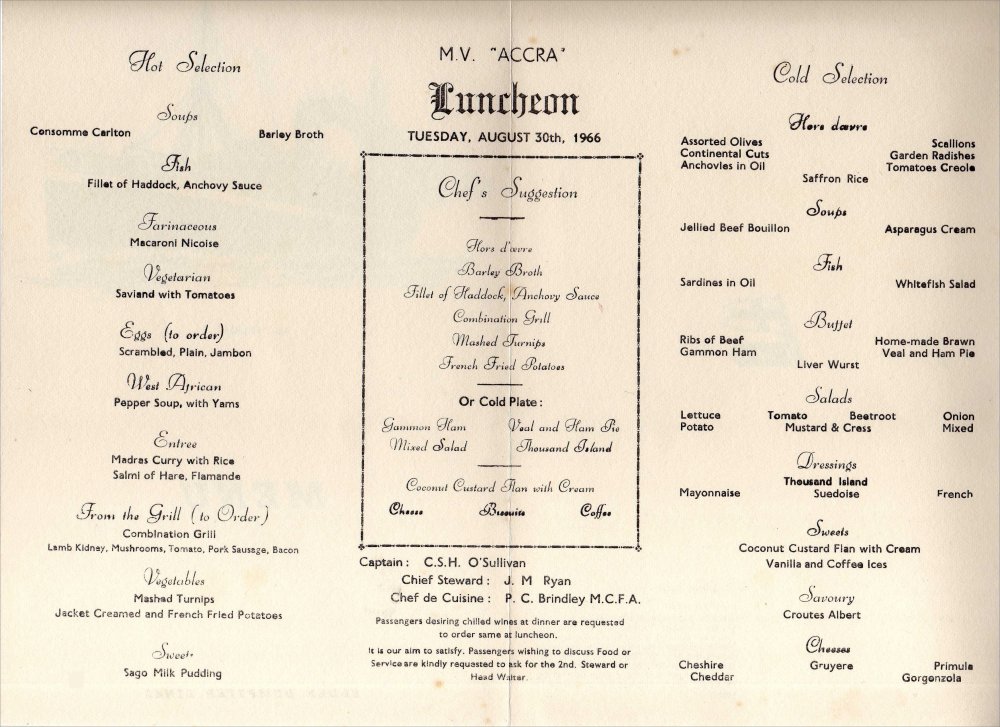 Hot Selection
Soups
Consomme Carlton Barley Broth
Fish
Fillet of Haddock, Anchovy Sauce
Farinaceous
Macaroni Nicoise
Vegetarian
Saviand with Tomatoes
Eggs (to order)
Scrambled, Plain, Jambon
West African
Pepper Soup, with Yams
Entree
Madras Curry with Rice
Salmi of Hare, Flamande
From the Grill (to Order)
Combination Grill
Lamb Kidney, Mushrooms, Tomato, Pork Sausage, Bacon
Vegetables
Mashed Turnips
Jacket Creamed and French Fried Potatoes
Sweets
Sago Milk Pudding
M.V. "ACCRA"
Luncheon
TUESDAY, AUGUST 30th, 1966
Chef's Suggestion
Hors d'œvre
Barley Broth
Fillet of Haddock, Anchovy Sauce
Combination Grill
Mashed Turnips
French Fried Potatoes
Or Cold Plate:
Gammon Ham Veal and Ham Pie
Mixed Salad Thousand Island
Coconut Custard Flan with Cream
Cheese Biscuits Coffee
Captain: C.S.H. O'Sullivan
Chief Steward: J. M Ryan
Chef de Cuisine: P. C. Brindley M.C.F.A.
Passengers desiring chilled wines at dinner are requested
to order same at luncheon.
It is our aim to satisfy. Passengers wishing to discuss Food or
Service are kindly requested to ask for the 2nd. Steward or
Head Waiter.
Cold Selection
Hors dœvre
Assorted Olives Scallions
Continental Cuts Garden Radishes
Anchovies in Oil Tomatoes Creole
Saffron Rice
Soups
Jellied Beef Bouillon Asparagus Cream
Fish
Sardines in Oil Whitefish Salad
Buffet
Ribs of Beef Home-made Brawn
Gammon Ham Veal and Ham Pie
Liver Wurst
Salads
Lettuce Tomato Beetroot Onion
Potato Mustard & Cress Mixed
Dressings
Thousand Island
Mayonnaise Suedoise French
Sweets
Coconut Custard Flan with Cream
Vanilla and Coffee Ices
Savoury
Croutes Albert
Cheeses
Cheshire Gruyere Primula
Cheddar Gorgonzola